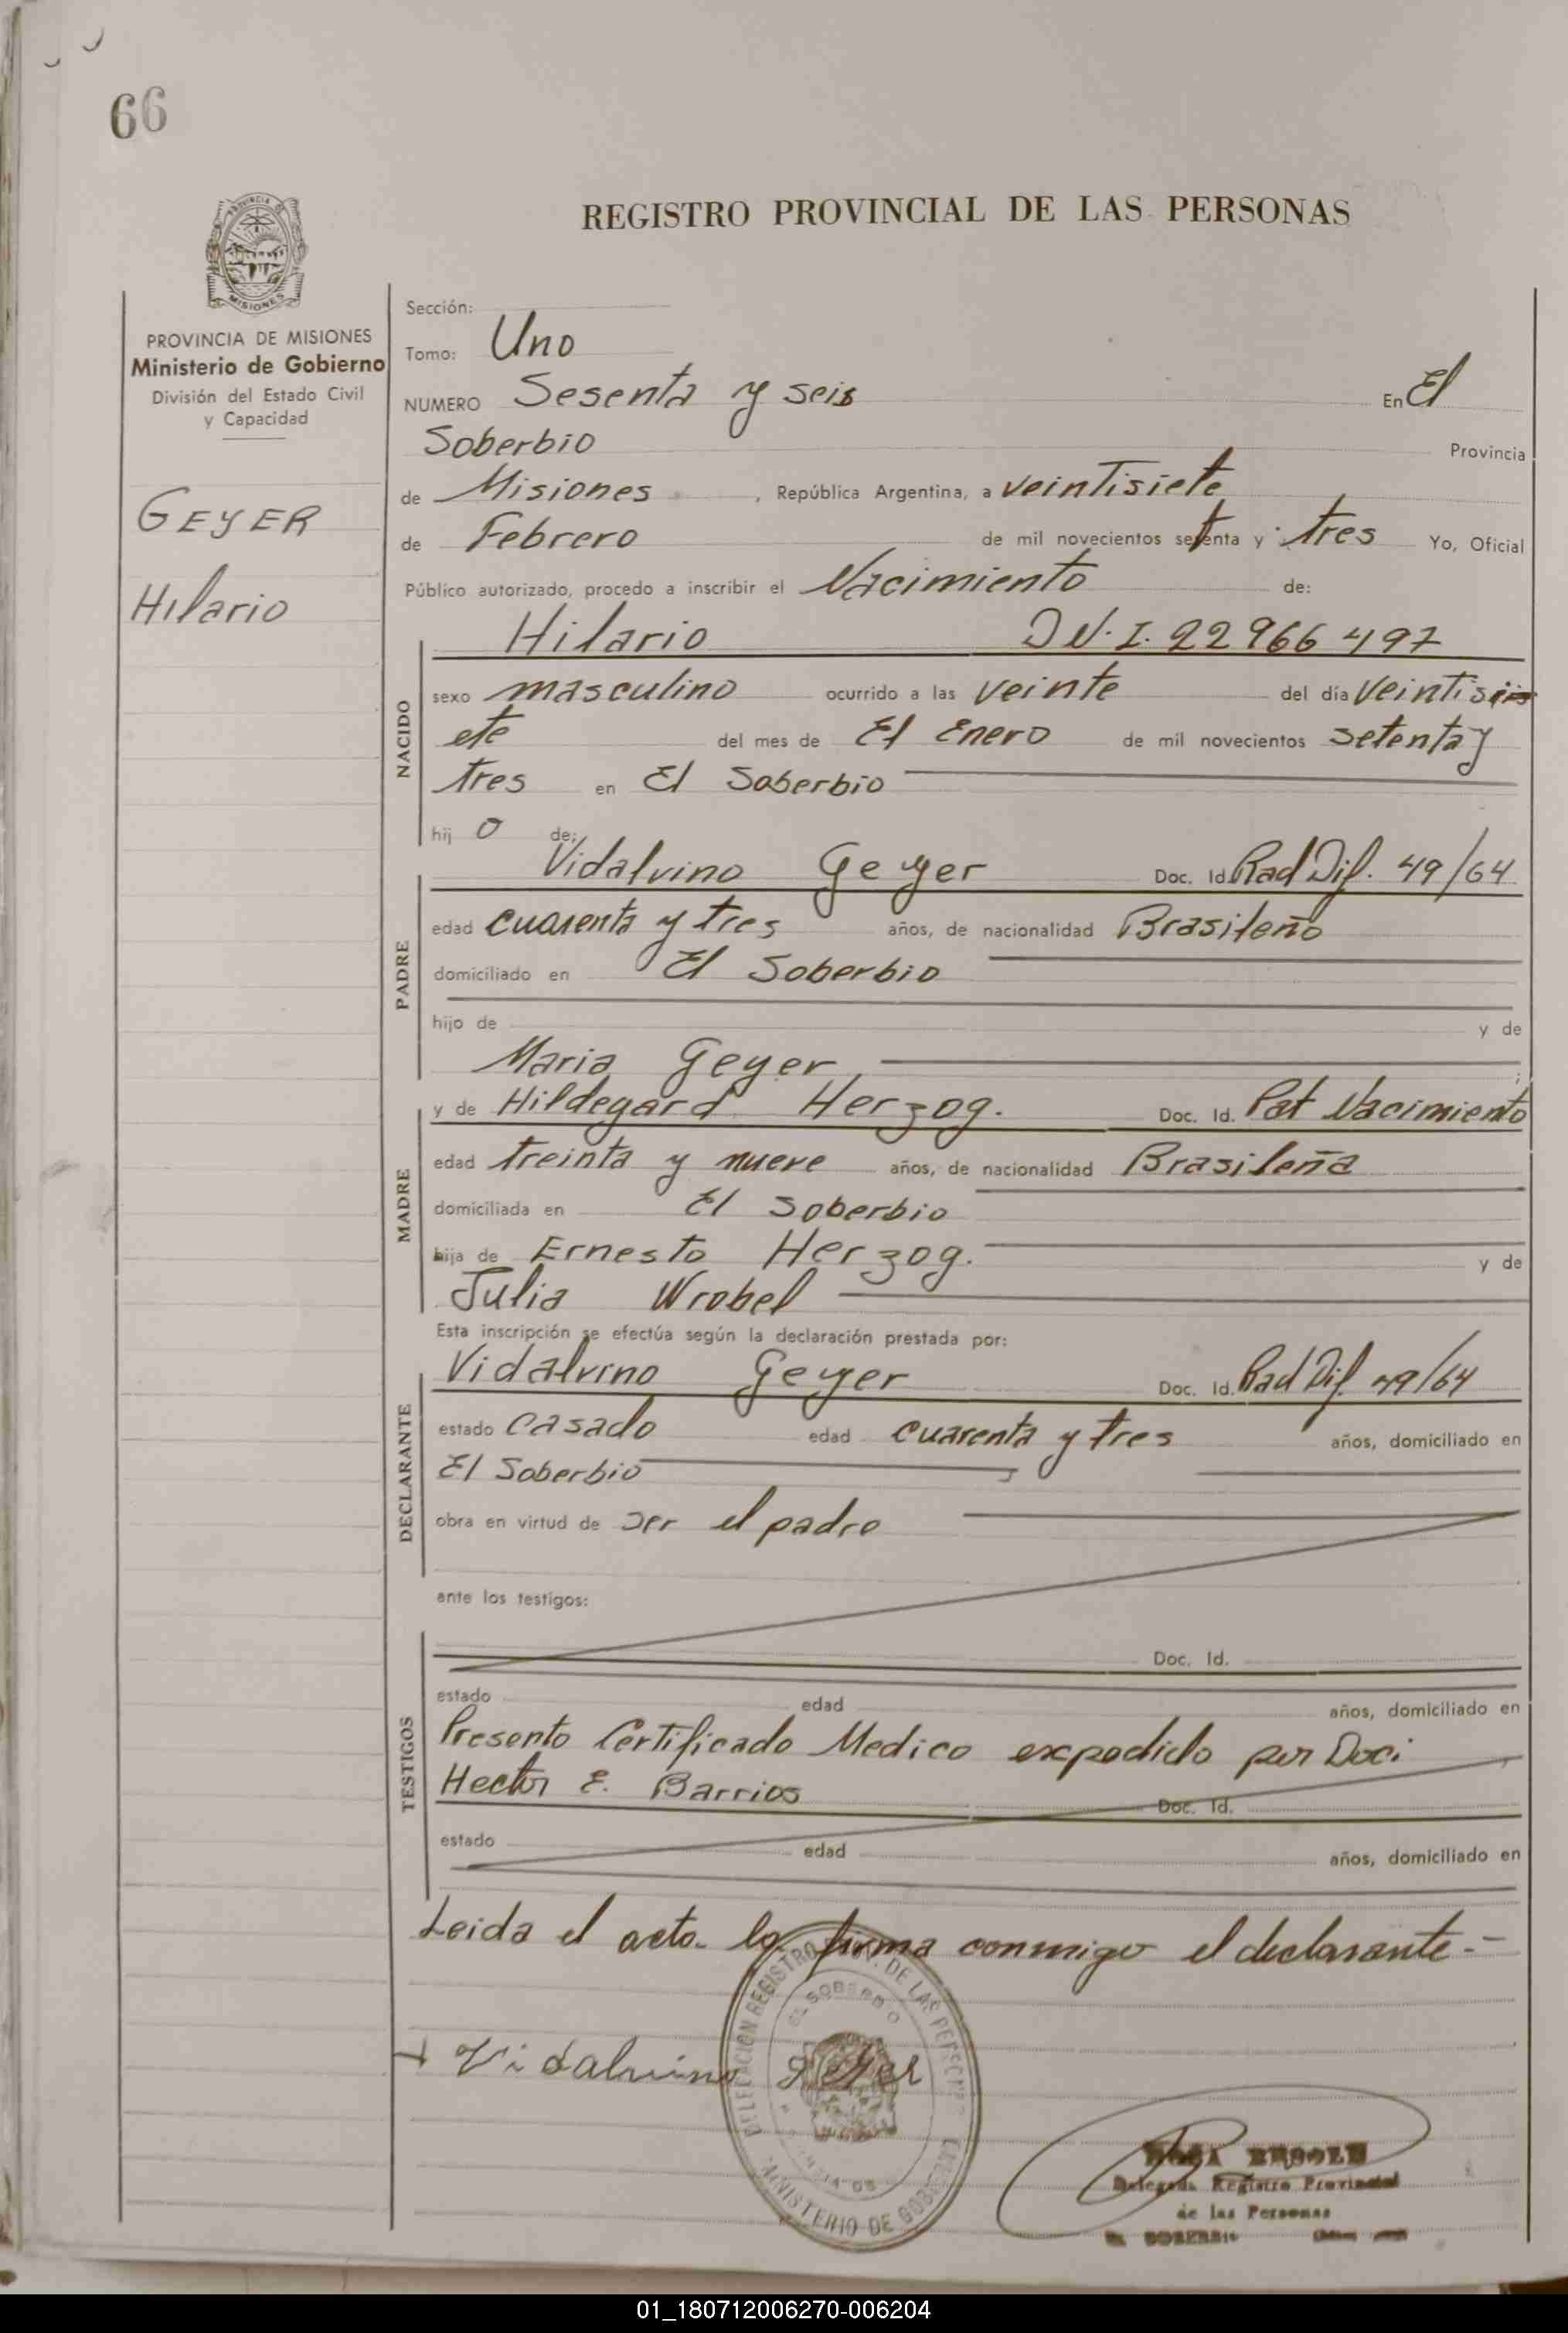 66
REGISTRO PROVINCIAL DE LAS PERSONAS
PROVINCIA DE
MISIONES
PROVINCIA DE MISIONES
Ministerio de Gobierno
División del Estado Civil
y Capacidad
GEYER
Hilario
Sección:
Tomo: Uno
NUMERO Sesenta y seis En El
Soberbio Provincia
de Misiones, República Argentina, a veintisiete
de Febrero de mil novecientos setenta y tres Yo, Oficial
Público autorizado, procedo a inscribir el Nacimiento de:
NACIDO
Hilario D N. I. 22 966 497
sexo masculino ocurrido a las veinte del día veintisi
ete del mes de El Enero de mil novecientos setenta y
tres en El Soberbio
hij o de:
PADRE
Vidalvino Geyer Doc. Id. Rad Dif. 49/64
edad cuarenta y tres años, de nacionalidad Brasileño
domiciliado en El Soberbio
hijo de y de
Maria Geyer ;
MADRE
y de Hildegard Herzog. Doc. Id. Pat Nacimiento
edad treinta y nueve años, de nacionalidad Brasileña
domiciliada en El Soberbio
hija de Ernesto Herzog. y de
Julia Wrobel
Esta inscripción se efectúa según la declaración prestada por:
DECLARANTE
Vidalvino Geyer Doc. Id. Rad Dif. 49/64
estado casado edad cuarenta y tres años, domiciliado en
El Soberbio
obra en virtud de ser el padre
ante los testigos:
TESTIGOS
Doc. Id.
estado edad años, domiciliado en
Presento Certificado Medico expedido por Doc:
Hector E. Barrios Doc. Id.
estado edad años, domiciliado en
Leida el acta la firma conmigo el declarante.-
Vidalvino Geyer
DELEGACION REGISTRO PROV. DE LAS PERSONAS
EL SOBERBIO
MINISTERIO DE GOBIERNO
Delegada Registro Provincial
de las Personas
EL SOBERBIO
01_180712006270-006204